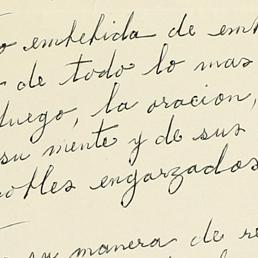 o embebida de em
de todo lo mas
luego, la oracion,
su mente y de sus
nobles engarzados
su manera de re